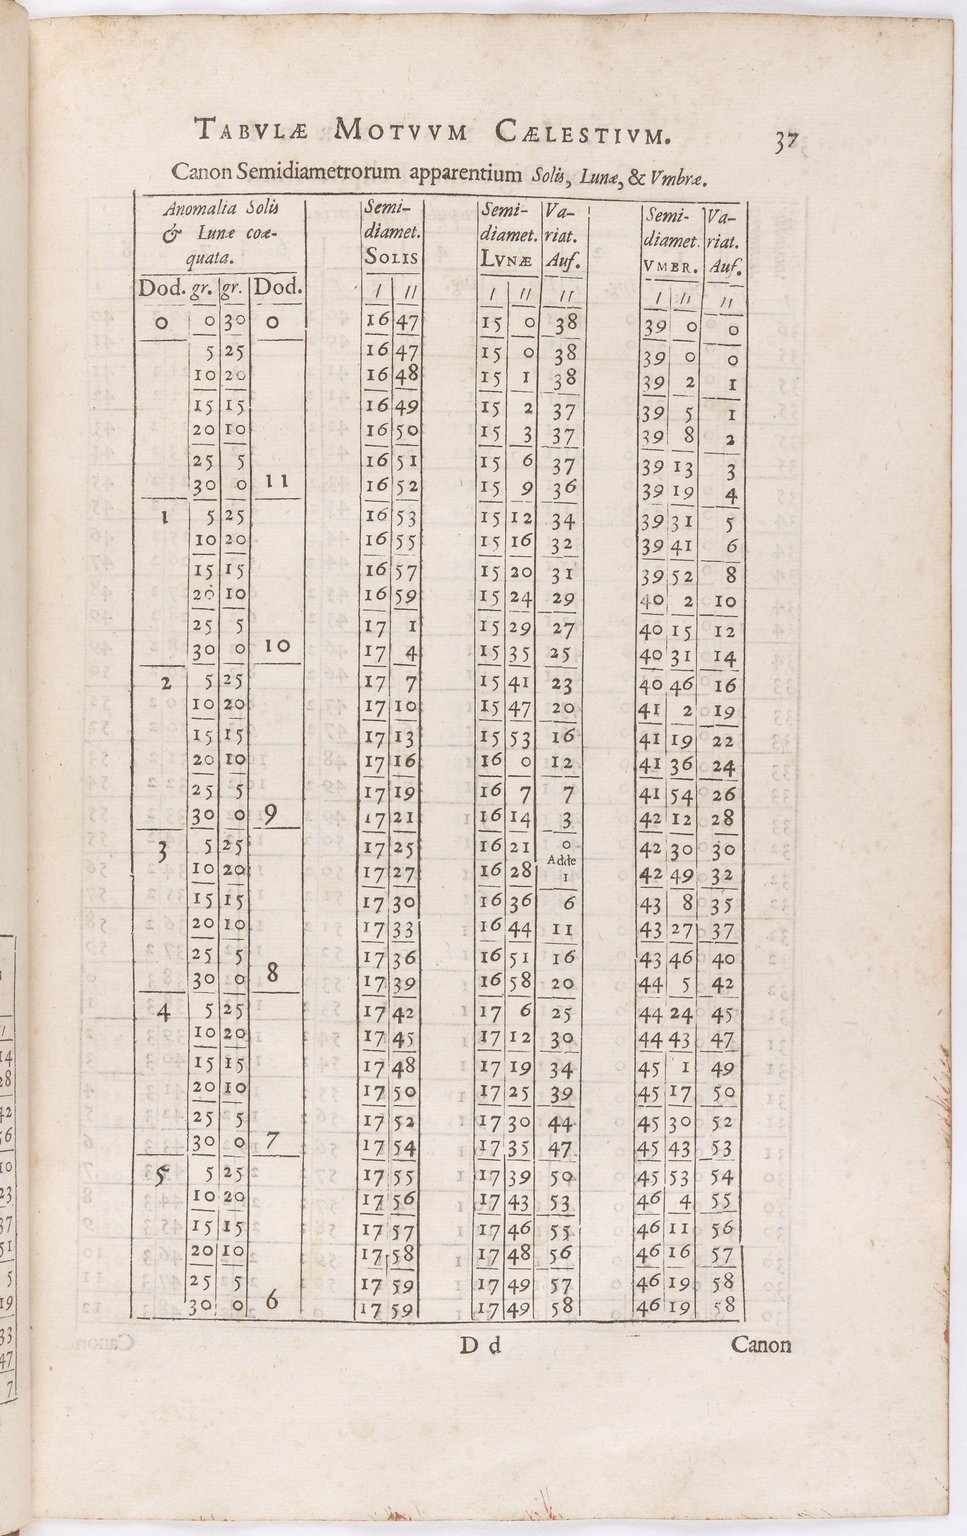 TABVLÆ MOTVVM CÆLESTIVM. 37
Canon Semidiametrorum apparentium Solis, Lunæ, & Vmbræ.
Anomalia Solis Semi- Semi- Va- Semi- Va-
& Lunæ coæ- diamet. diamet. riat. diamet. riat.
quata. SOLIS LVNÆ Auf. VMBR. Auf.
Dod. gr. gr. Dod. / // / // // / // //
0 0 30 0 16 47 15 0 38 39 0 0
5 25 16 47 15 0 38 39 0 0
10 20 16 48 15 1 38 39 2 1
15 15 16 49 15 2 37 39 5 1
20 10 16 50 15 3 37 39 8 2
25 5 16 51 15 6 37 39 13 3
30 0 11 16 52 15 9 36 39 19 4
1 5 25 16 53 15 12 34 39 31 5
10 20 16 55 15 16 32 39 41 6
15 15 16 57 15 20 31 39 52 8
20 10 16 59 15 24 29 40 2 10
25 5 17 1 15 29 27 40 15 12
30 0 10 17 4 15 35 25 40 31 14
2 5 25 17 7 15 41 23 40 46 16
10 20 17 10 15 47 20 41 2 19
15 15 17 13 15 53 16 41 19 22
20 10 17 16 16 0 12 41 36 24
25 5 17 19 16 7 7 41 54 26
30 0 9 17 21 16 14 3 42 12 28
3 5 25 17 25 16 21 0 42 30 30
Adde
10 20 17 27 16 28 1 42 49 32
15 15 17 30 16 36 6 43 8 35
20 10 17 33 16 44 11 43 27 37
25 5 17 36 16 51 16 43 46 40
30 0 8 17 39 16 58 20 44 5 42
4 5 25 17 42 17 6 25 44 24 45
10 20 17 45 17 12 30 44 43 47
15 15 17 48 17 19 34 45 1 49
20 10 17 50 17 25 39 45 17 50
25 5 17 52 17 30 44 45 30 52
30 0 7 17 54 17 35 47 45 43 53
5 5 25 17 55 17 39 50 45 53 54
10 20 17 56 17 43 53 46 4 55
15 15 17 57 17 46 55 46 11 56
20 10 17 58 17 48 56 46 16 57
25 5 17 59 17 49 57 46 19 58
30 0 6 17 59 17 49 58 46 19 58
D d Canon